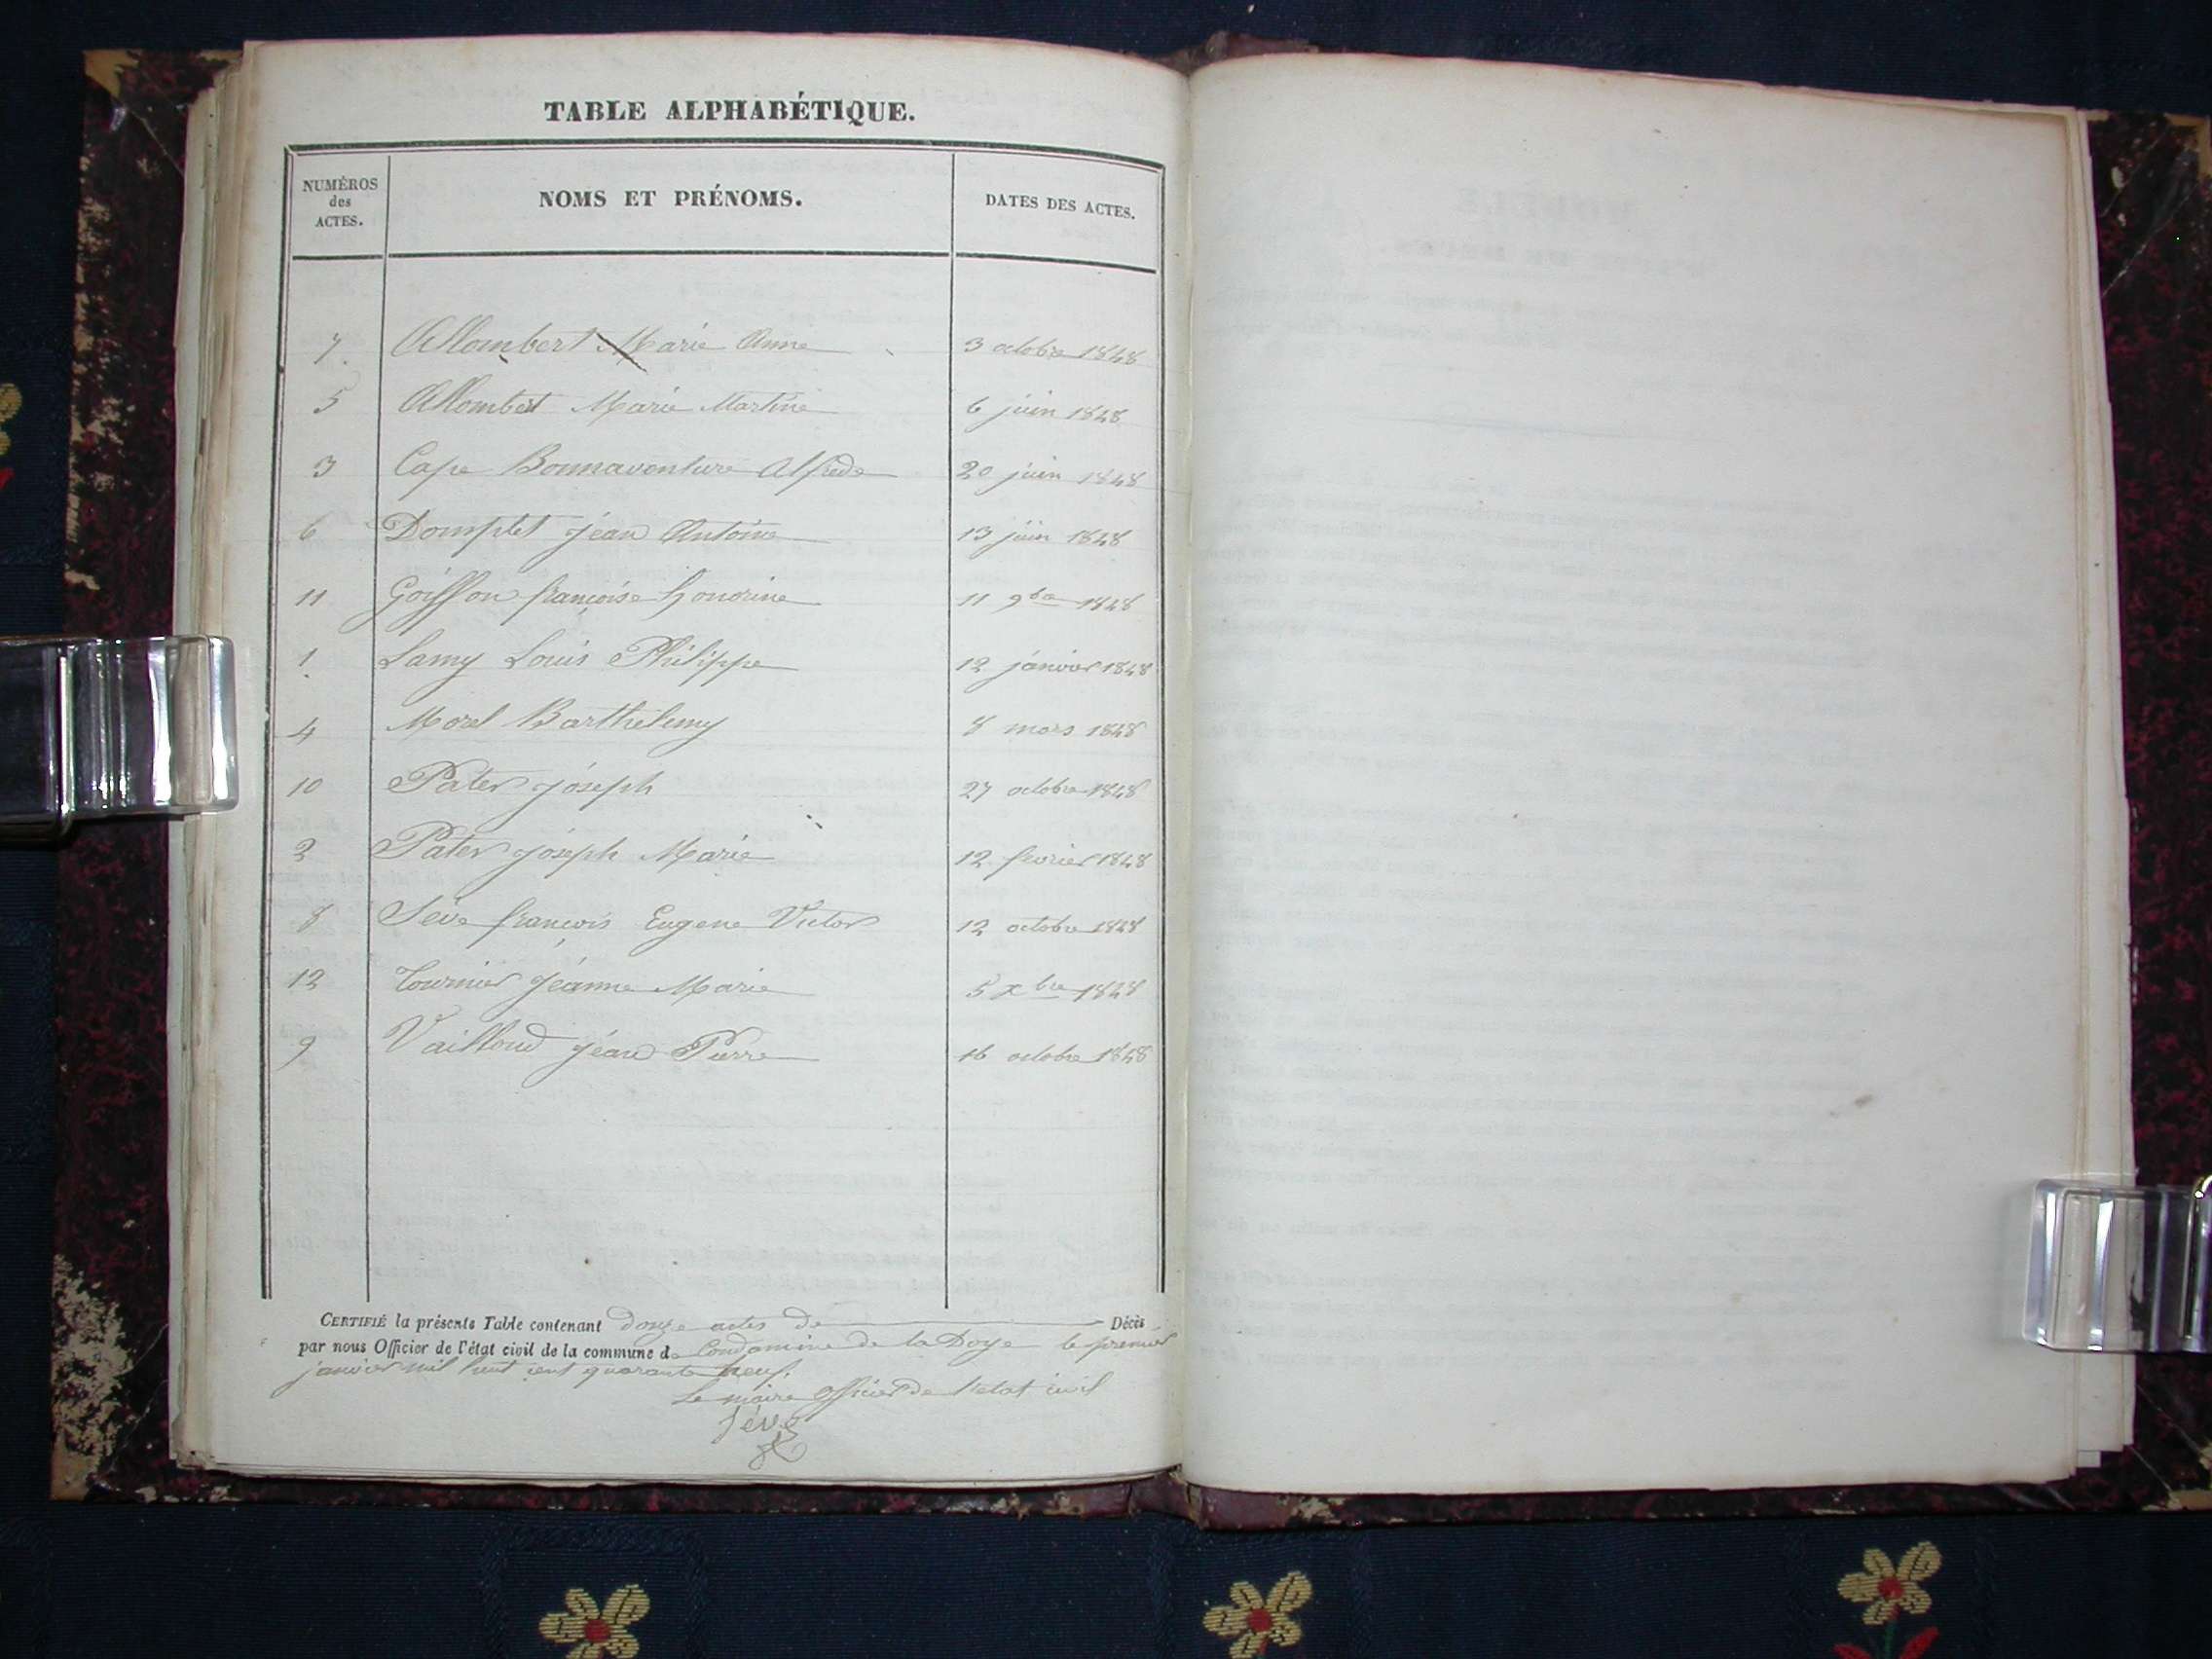 TABLE ALPHABÉTIQUE.
NUMÉROS des ACTES.
NOMS ET PRÉNOMS.
DATES DES ACTES.
7. Allombert Marie Anne 3 octobre 1848
5 Allombert Marie Martine 6 juin 1848
3 Cape Bonnaventure Alfrede 20 juin 1848
6 Domplet Jéan Antoine 13 juin 1848
11 Goiffon françoise honorine 11 9bre 1848
1. Lamy Louis Philippe 12 janvier 1848
4 Morel Barthelemy 8 mars 1848
10 Pater Jóseph 27 octobre 1848
2 Pater Jóseph Marie 12 fevrier 1848
8 Séve françois Eugene Victor 12 octobre 1848
12 Tournier Jéanne Marie 5 xbre 1848
9 Vailloud Jéan Pierre 16 octobre 1848
CERTIFIÉ la présente Table contenant douze actes de Décès
par nous Officier de l'état civil de la commune de Condamine de la Doye le premier
janvier mil huit cent quarante neuf.
Le maire officier de l'etat civil
Séve